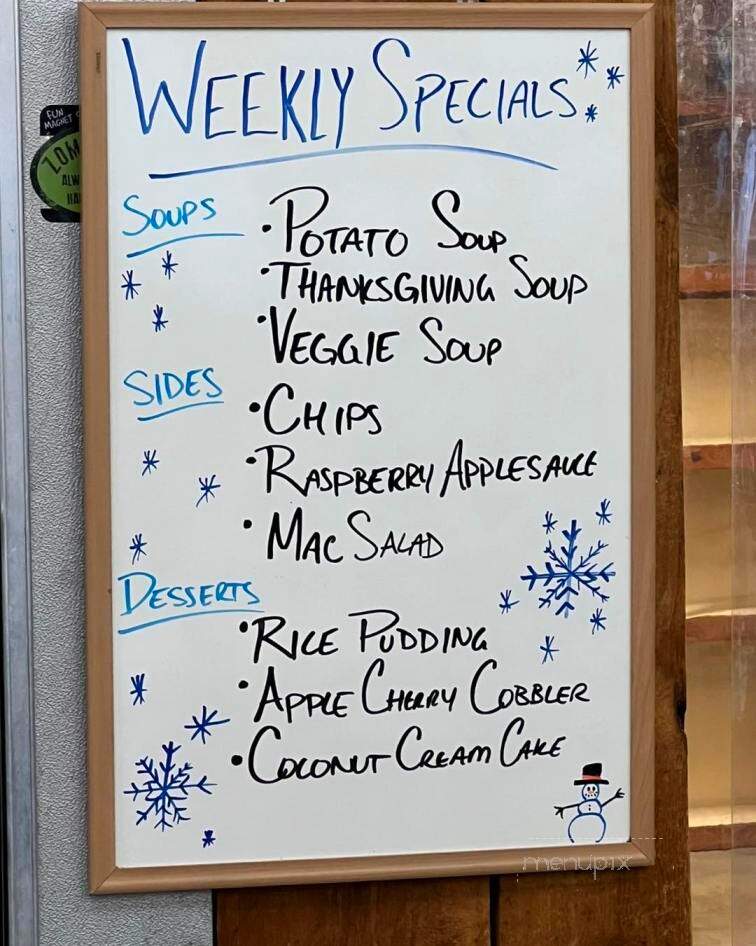 WEEKLY SPECIALS
SOUPS
•POTATO SOUP
•THANKSGIVING SOUP
•VEGGIE SOUP
SIDES
•CHIPS
•RASPBERRY APPLESAUCE
•MAC SALAD
DESSERTS
•RICE PUDDING
•APPLE CHERRY COBBLER
•COCONUT CREAM CAKE
FUN
MAGNET
menupix